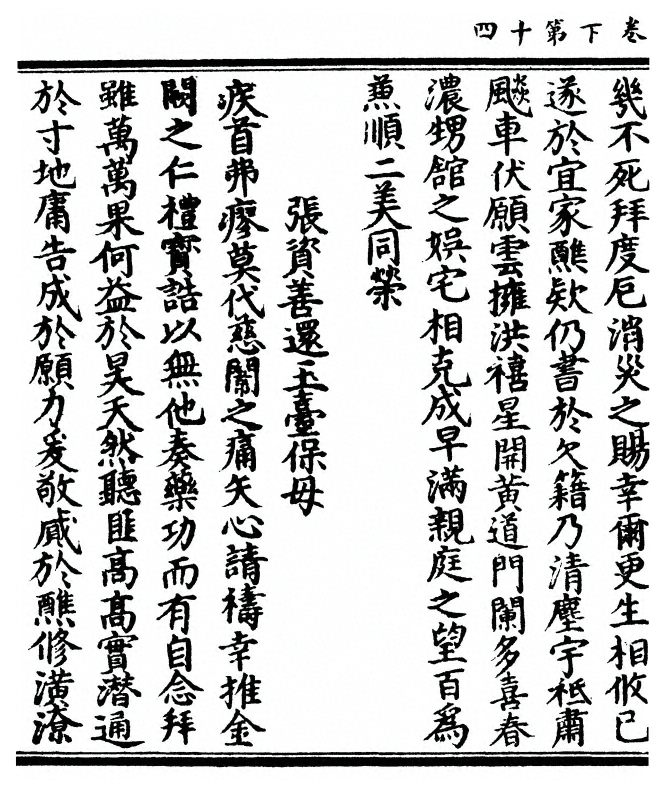 卷下第十四
幾不死拜度厄消災之賜幸爾更生相攸已
遂於宜家醮欵仍書於欠籍乃清塵宇祗肅
飈車伏願雲擁洪禧星開黄道門闌多喜春
濃甥舘之娯宅相克成早滿親庭之望百爲
蕉順二美同榮
張資善還玉臺保母
疾首弗瘳莫代慈闈之痛矢心請禱幸推金
闕之仁禮實誥以無他奏藥功而有自念拜
雖萬萬果何益於昊天然聽匪高高實潛通
於寸地庸告成於願力爰敬慼於醮修潢潦